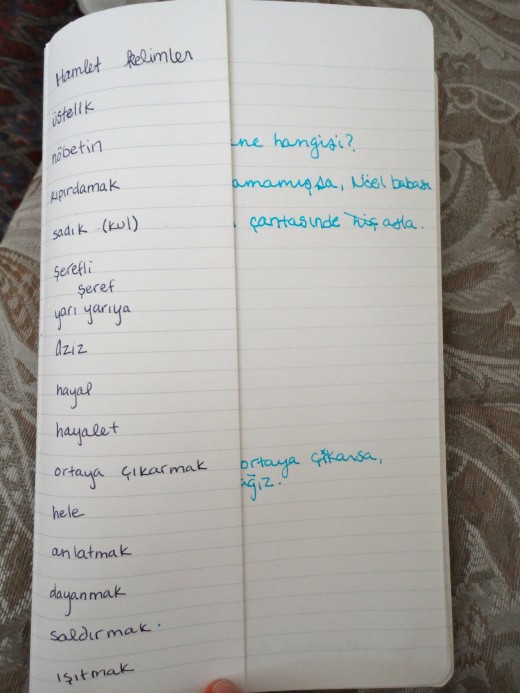 Hamlet kelimler
üstelik
nöbetin
kıpırdamak
sadık (kul)
şerefli
şeref
yarı yarıya
Aziz
hayal
hayalet
ortaya çıkarmak
hele
anlatmak
dayanmak
saldırmak.
ışıtmak
ne hangisi?
amamışsa, Nöel babası
çantasında hiç asla.
ortaya çıkarsa,
ağız.